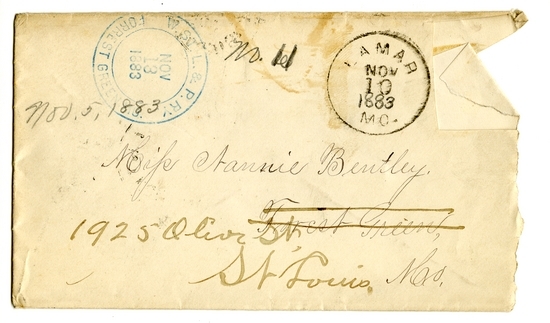 No. 11
LAMAR
NOV
10
1883
MO.
L. & P. RY.
NOV
13
1883
FORREST GREEN
Nov. 5, 1883
Miss Nannie Bentley.
Forest Green,
1925 Olive St.
St Louis, Mo.